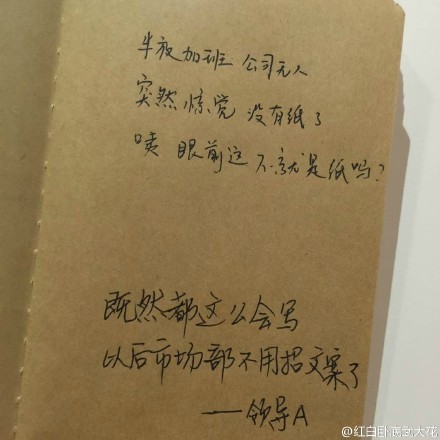 半夜加班 公司无人
突然惊觉 没有纸了
咦 眼前这 不就是纸吗?
既然都这么会写
以后市场部不用招文案了
——领导A
@红白卧底勁大花